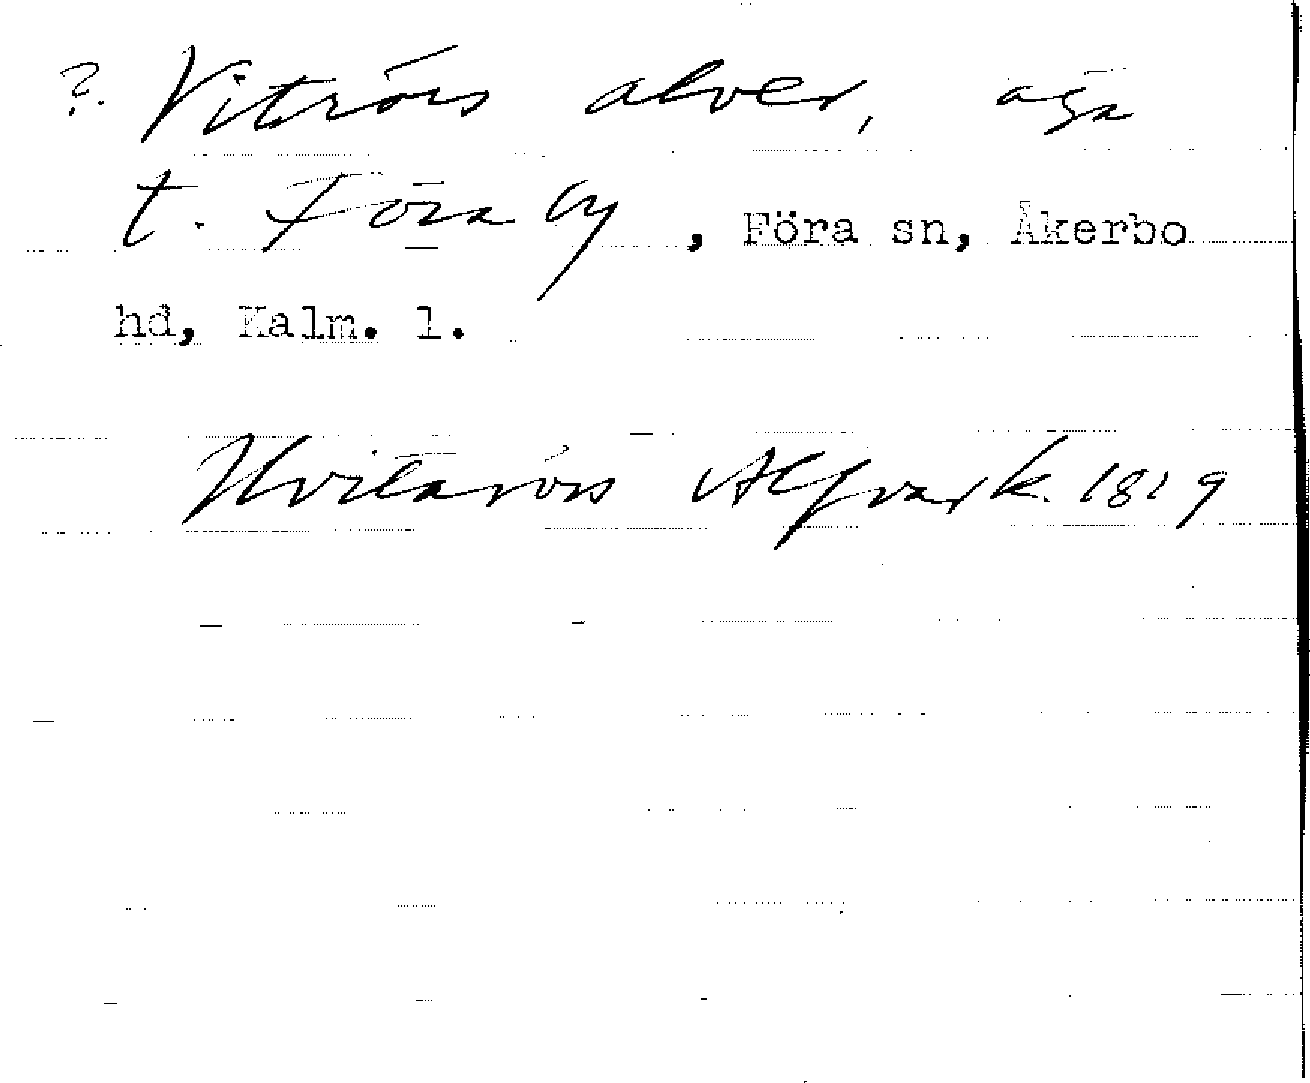 ?. Vitrörs alver, äga
t. Föra by, Föra sn, Åkerbo
hd, Kalm. l.
Hvitarörs Alfvar k. 1819